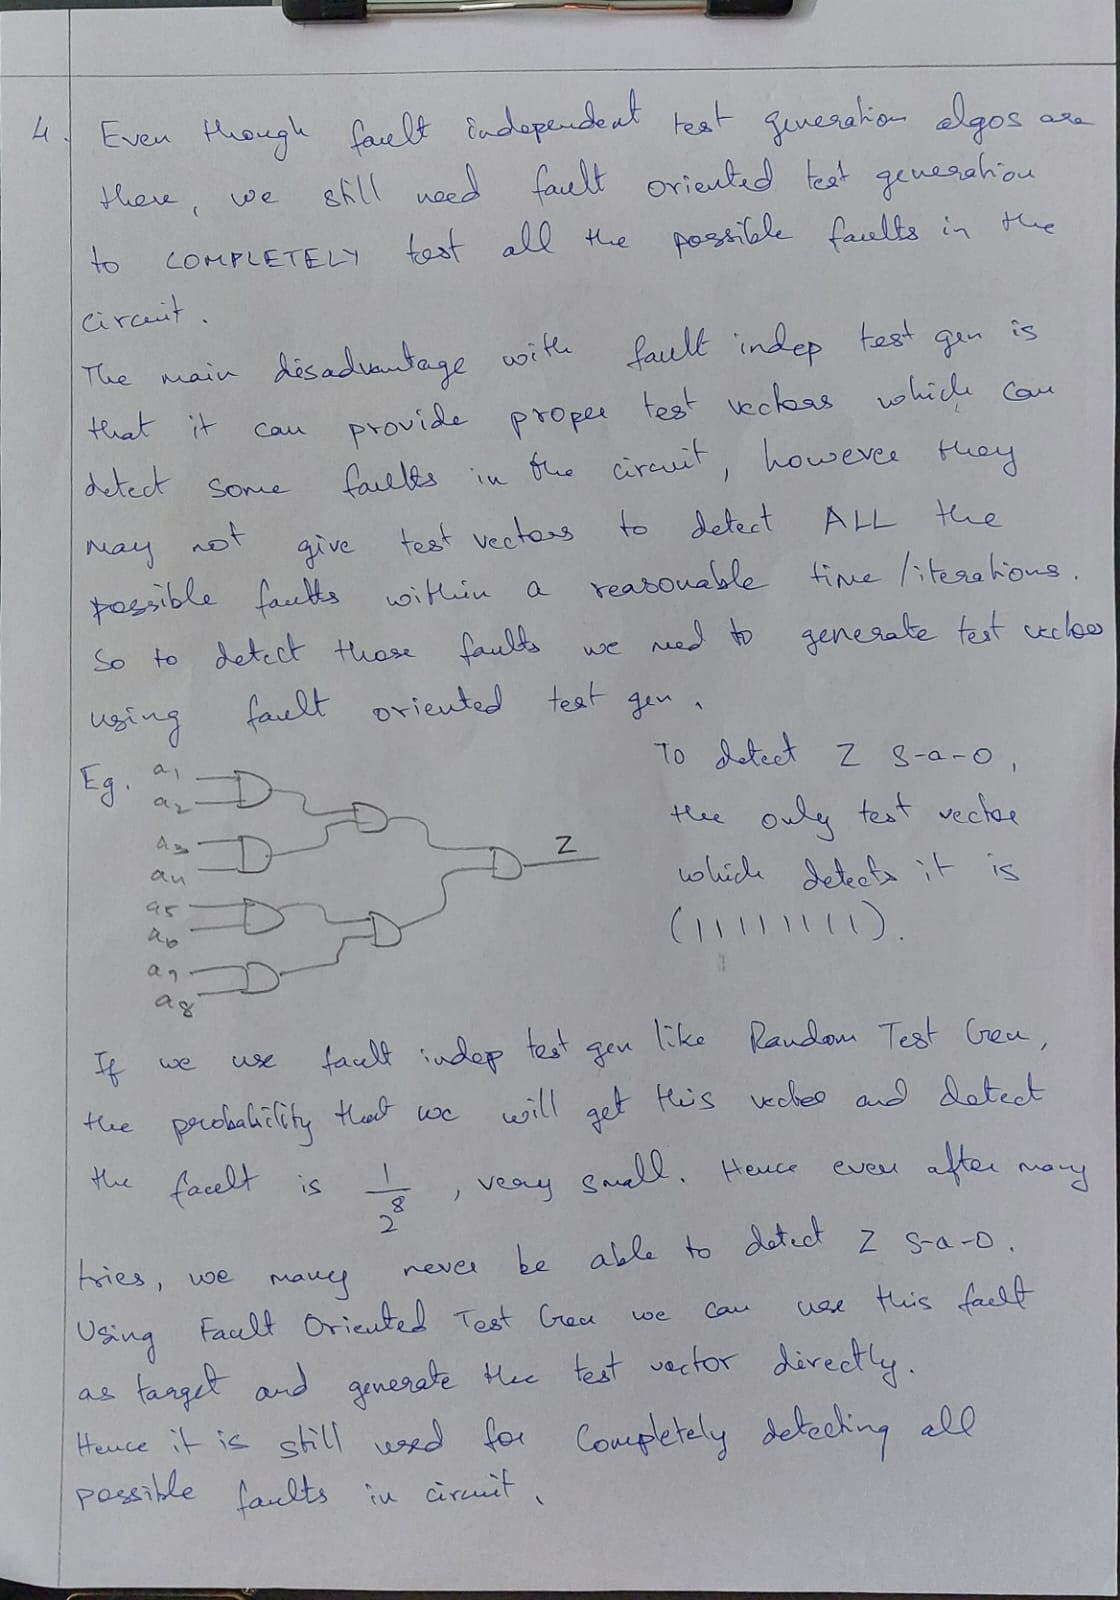 4. Even though fault independent test generation algos are
there, we still need fault oriented test generation
to COMPLETELY test all the possible faults in the
circuit.
The main disadvantage with fault indep test gen is
that it can provide proper test vectors which can
detect some faults in the circuit, however they
may not give test vectors to detect ALL the
possible faults within a reasonable time/iterations.
So to detect those faults we need to generate test vector
using fault oriented test gen.
Eg.
a1
a2
a3
a4
a5
a6
a7
a8
Z
To detect Z s-a-0,
the only test vector
which detects it is
(11111111).
If we use fault indep test gen like Random Test Gen,
the probability that we will get this vector and detect
the fault is 1/2^8, very small. Hence even after many
tries, we many never be able to detect Z s-a-0.
Using Fault Oriented Test Gen we can use this fault
as target and generate the test vector directly.
Hence it is still used for Completely detecting all
possible faults in circuit.